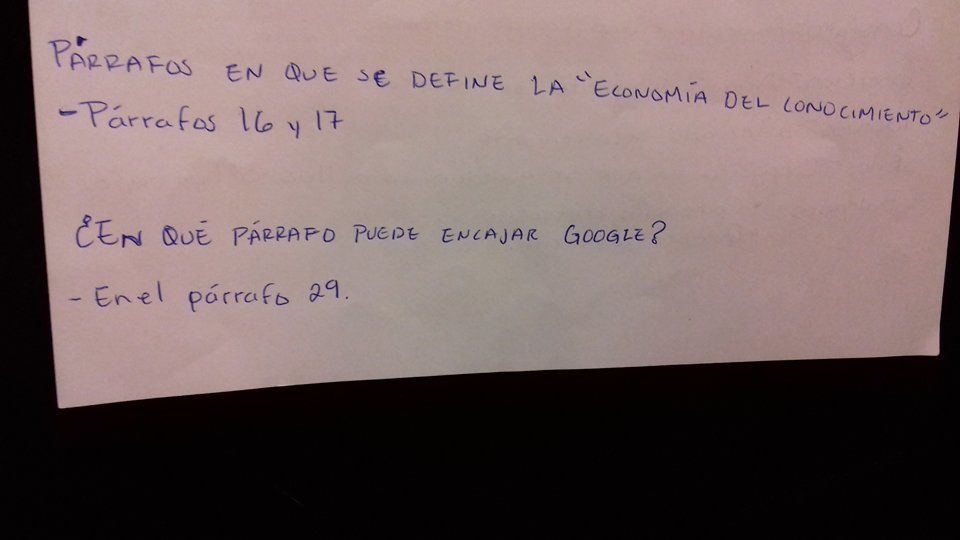 PÁRRAFOS EN QUE SE DEFINE LA "ECONOMÍA DEL CONOCIMIENTO"
- Párrafos 16 y 17
¿EN QUÉ PÁRRAFO PUEDE ENCAJAR GOOGLE?
- En el párrafo 29.